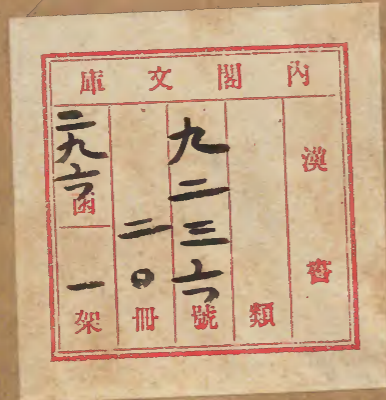 內閣文庫
漢書
類
九二三六號
二〇冊
二九六函
一架